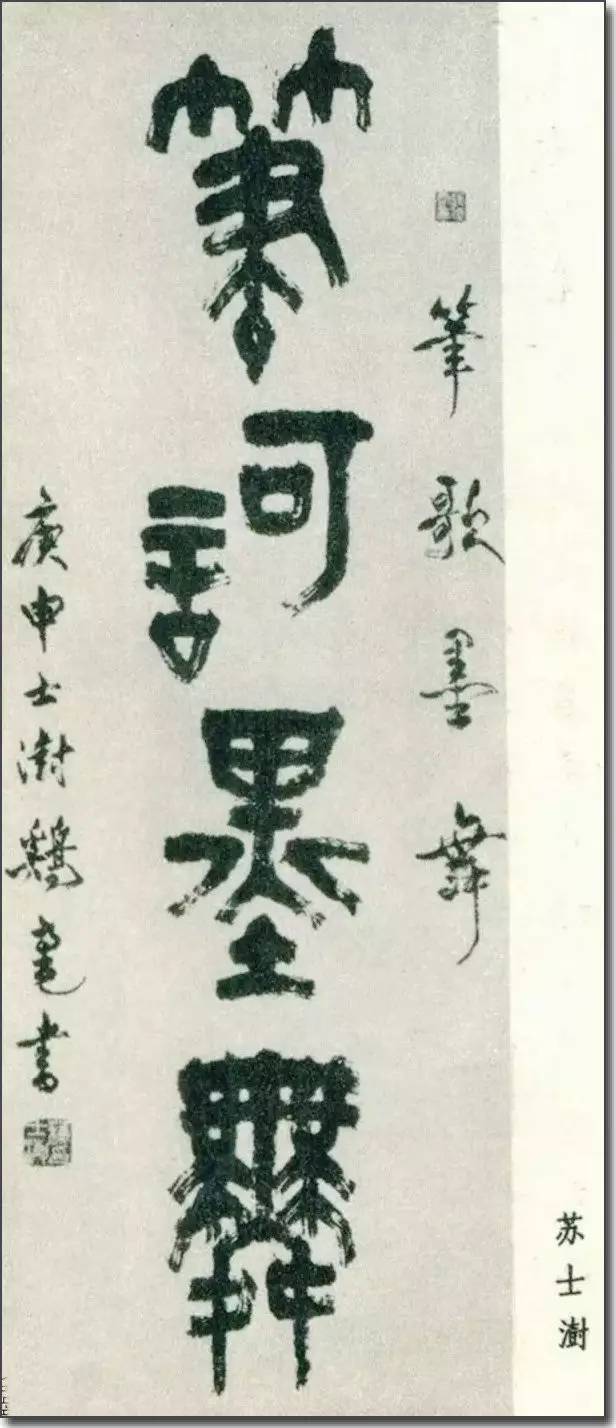 苏士澍
筆歌墨舞
筆訶墨舞
庚申士澍鷄毫書